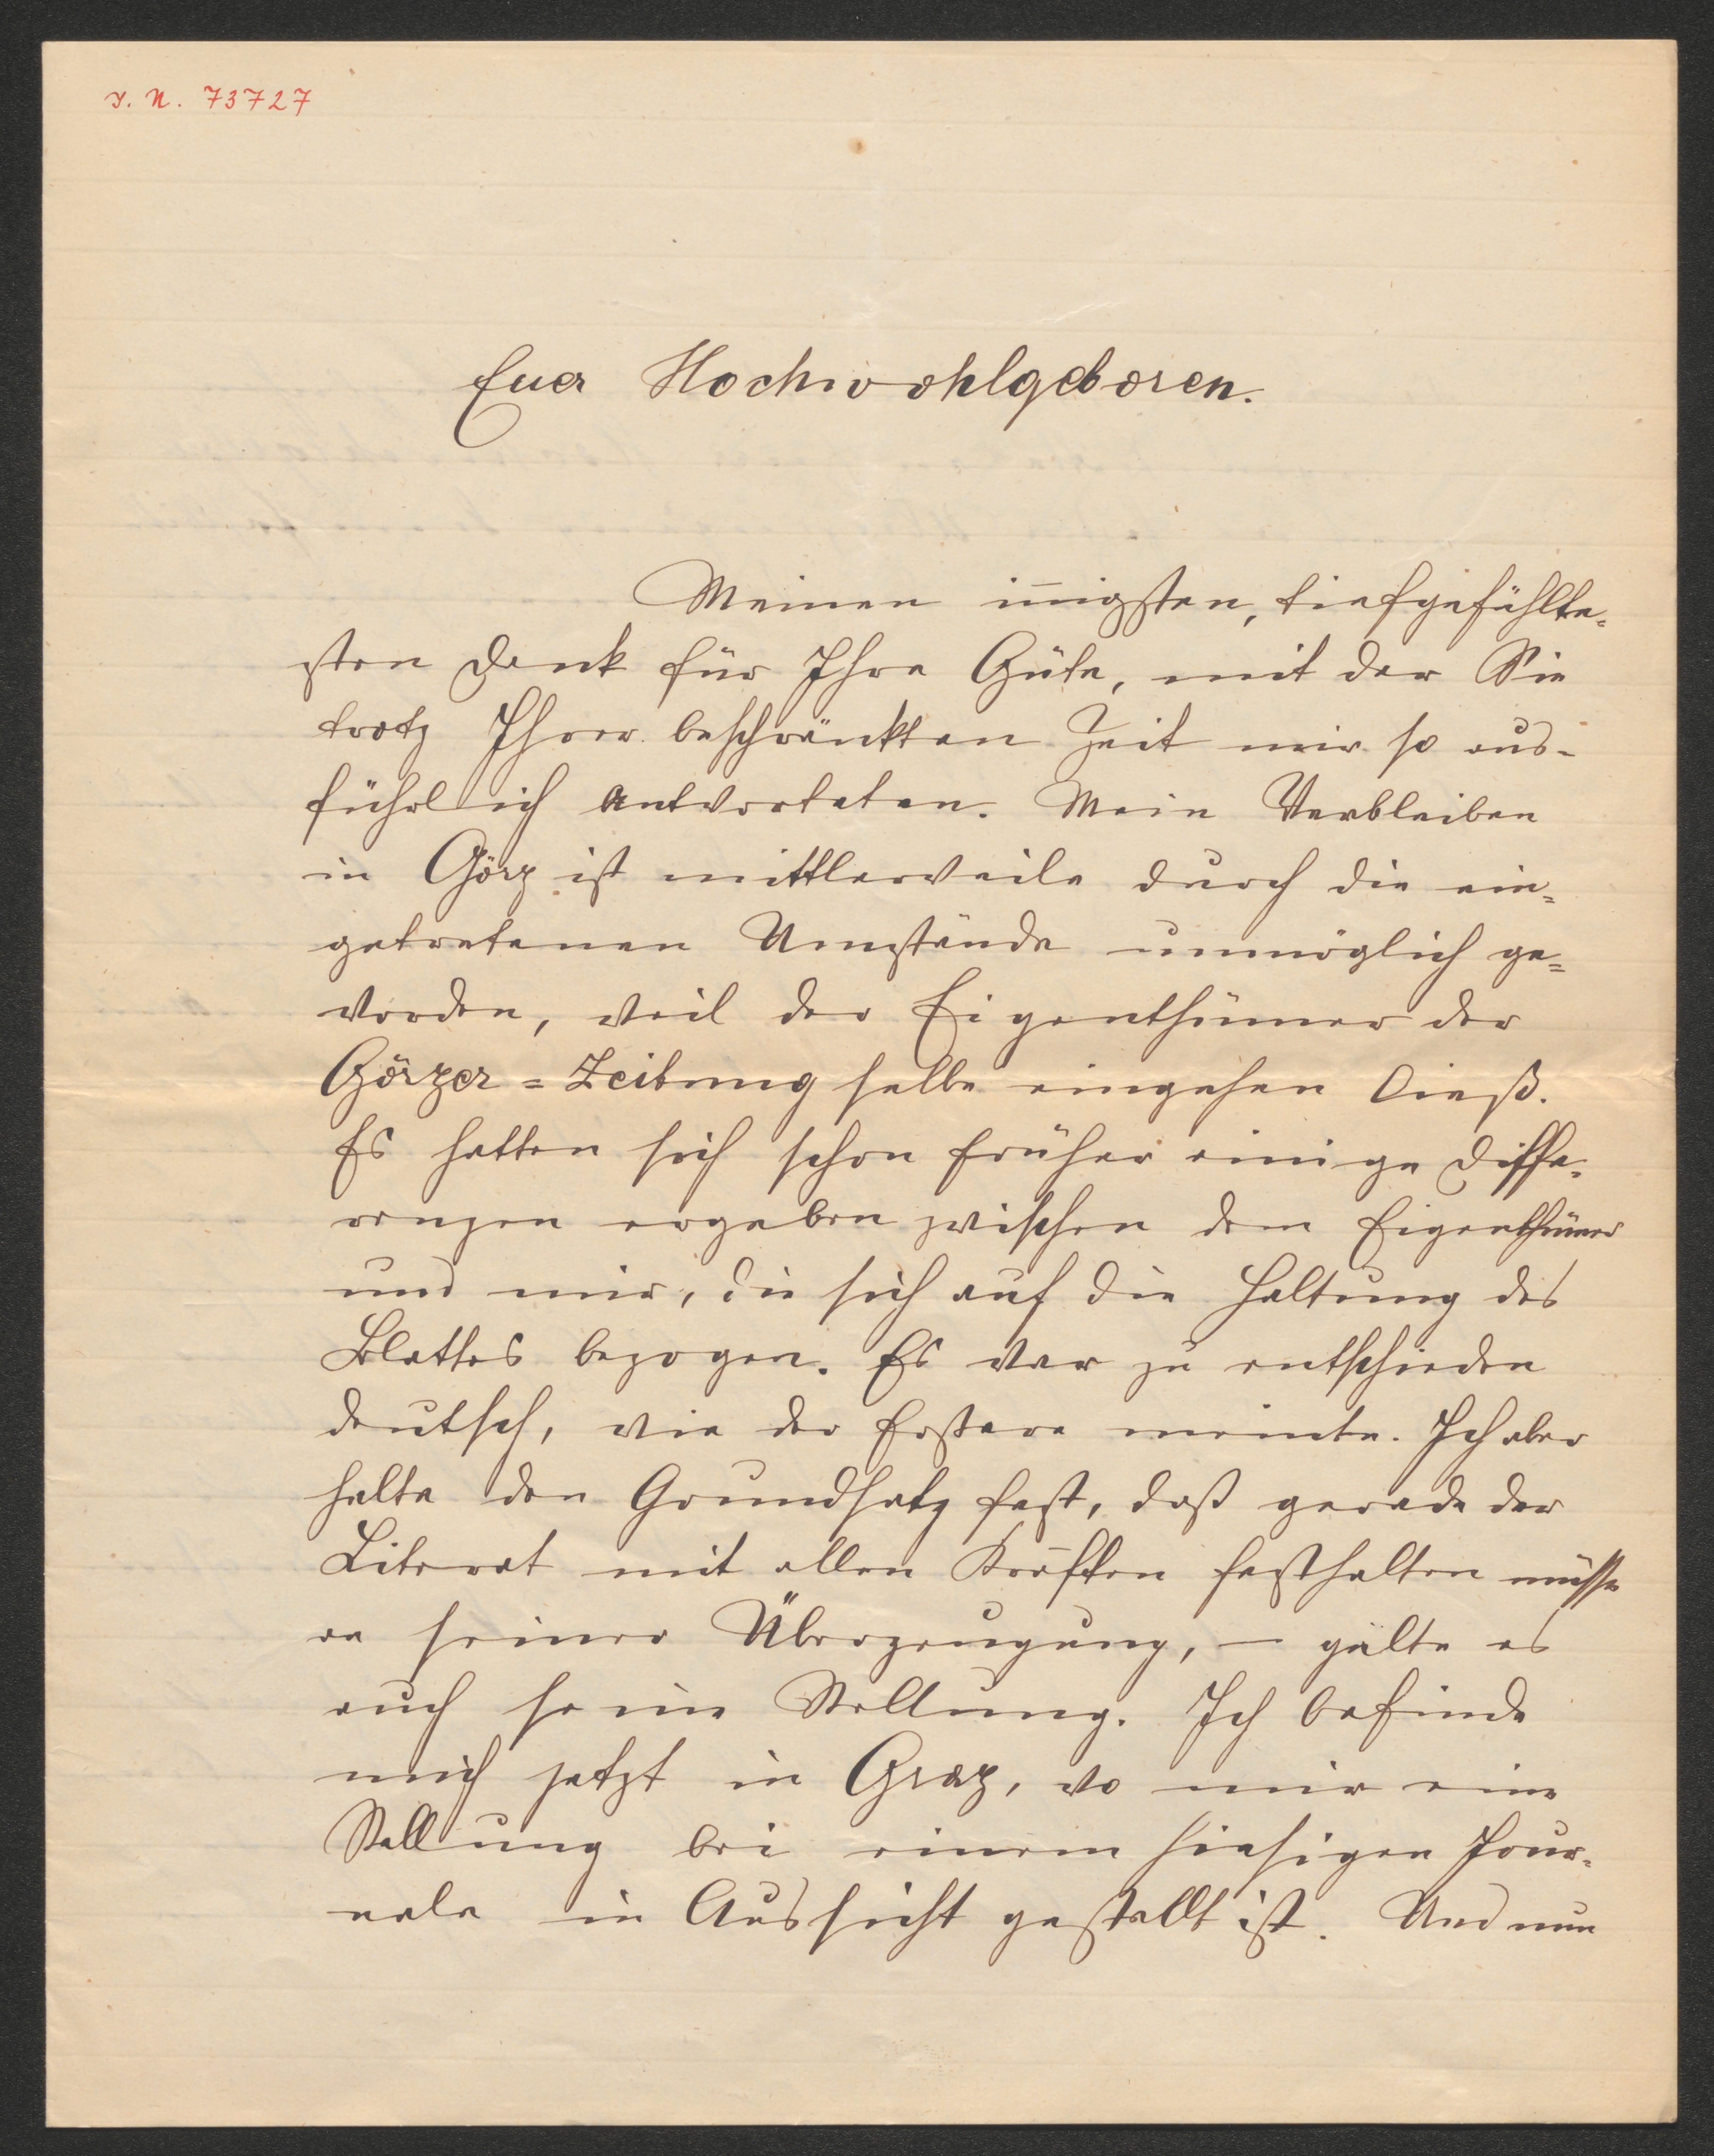 I. N. 73727
Euer Hochwohlgeboren.
Meinen iñigsten, tiefgefühlte=
sten Dank für Ihre Güte, mit der Sie
trotz Ihrer beschränkten Zeit mir so aus-
führlich antworteten. Mein Verbleiben
in Görz ist mittlerweile durch die ein=
getretenen Umstände unmöglich ge=
worden, weil der Eigenthümer der
Görzer=Zeitung selbe eingehen ließ.
Es hatten sich schon früher einige Diffe=
renzen ergeben zwischen dem Eigenthümer
und mir, die sich auf die Haltung des
Blattes bezogen. Es war zu entschieden
deutsch, wie der Erstere meinte. Ich aber
halte den Grundsatz fest, daß gerade der
Literat mit allen Kräften festhalten müsse
an seiner Überzeugung, – gälte es
auch seine Stellung. Ich befinde
mich jetzt in Graz, wo mir eine
Stellung bei einem hiesigen Jour=
nale in Aussicht gestellt ist. Und nun